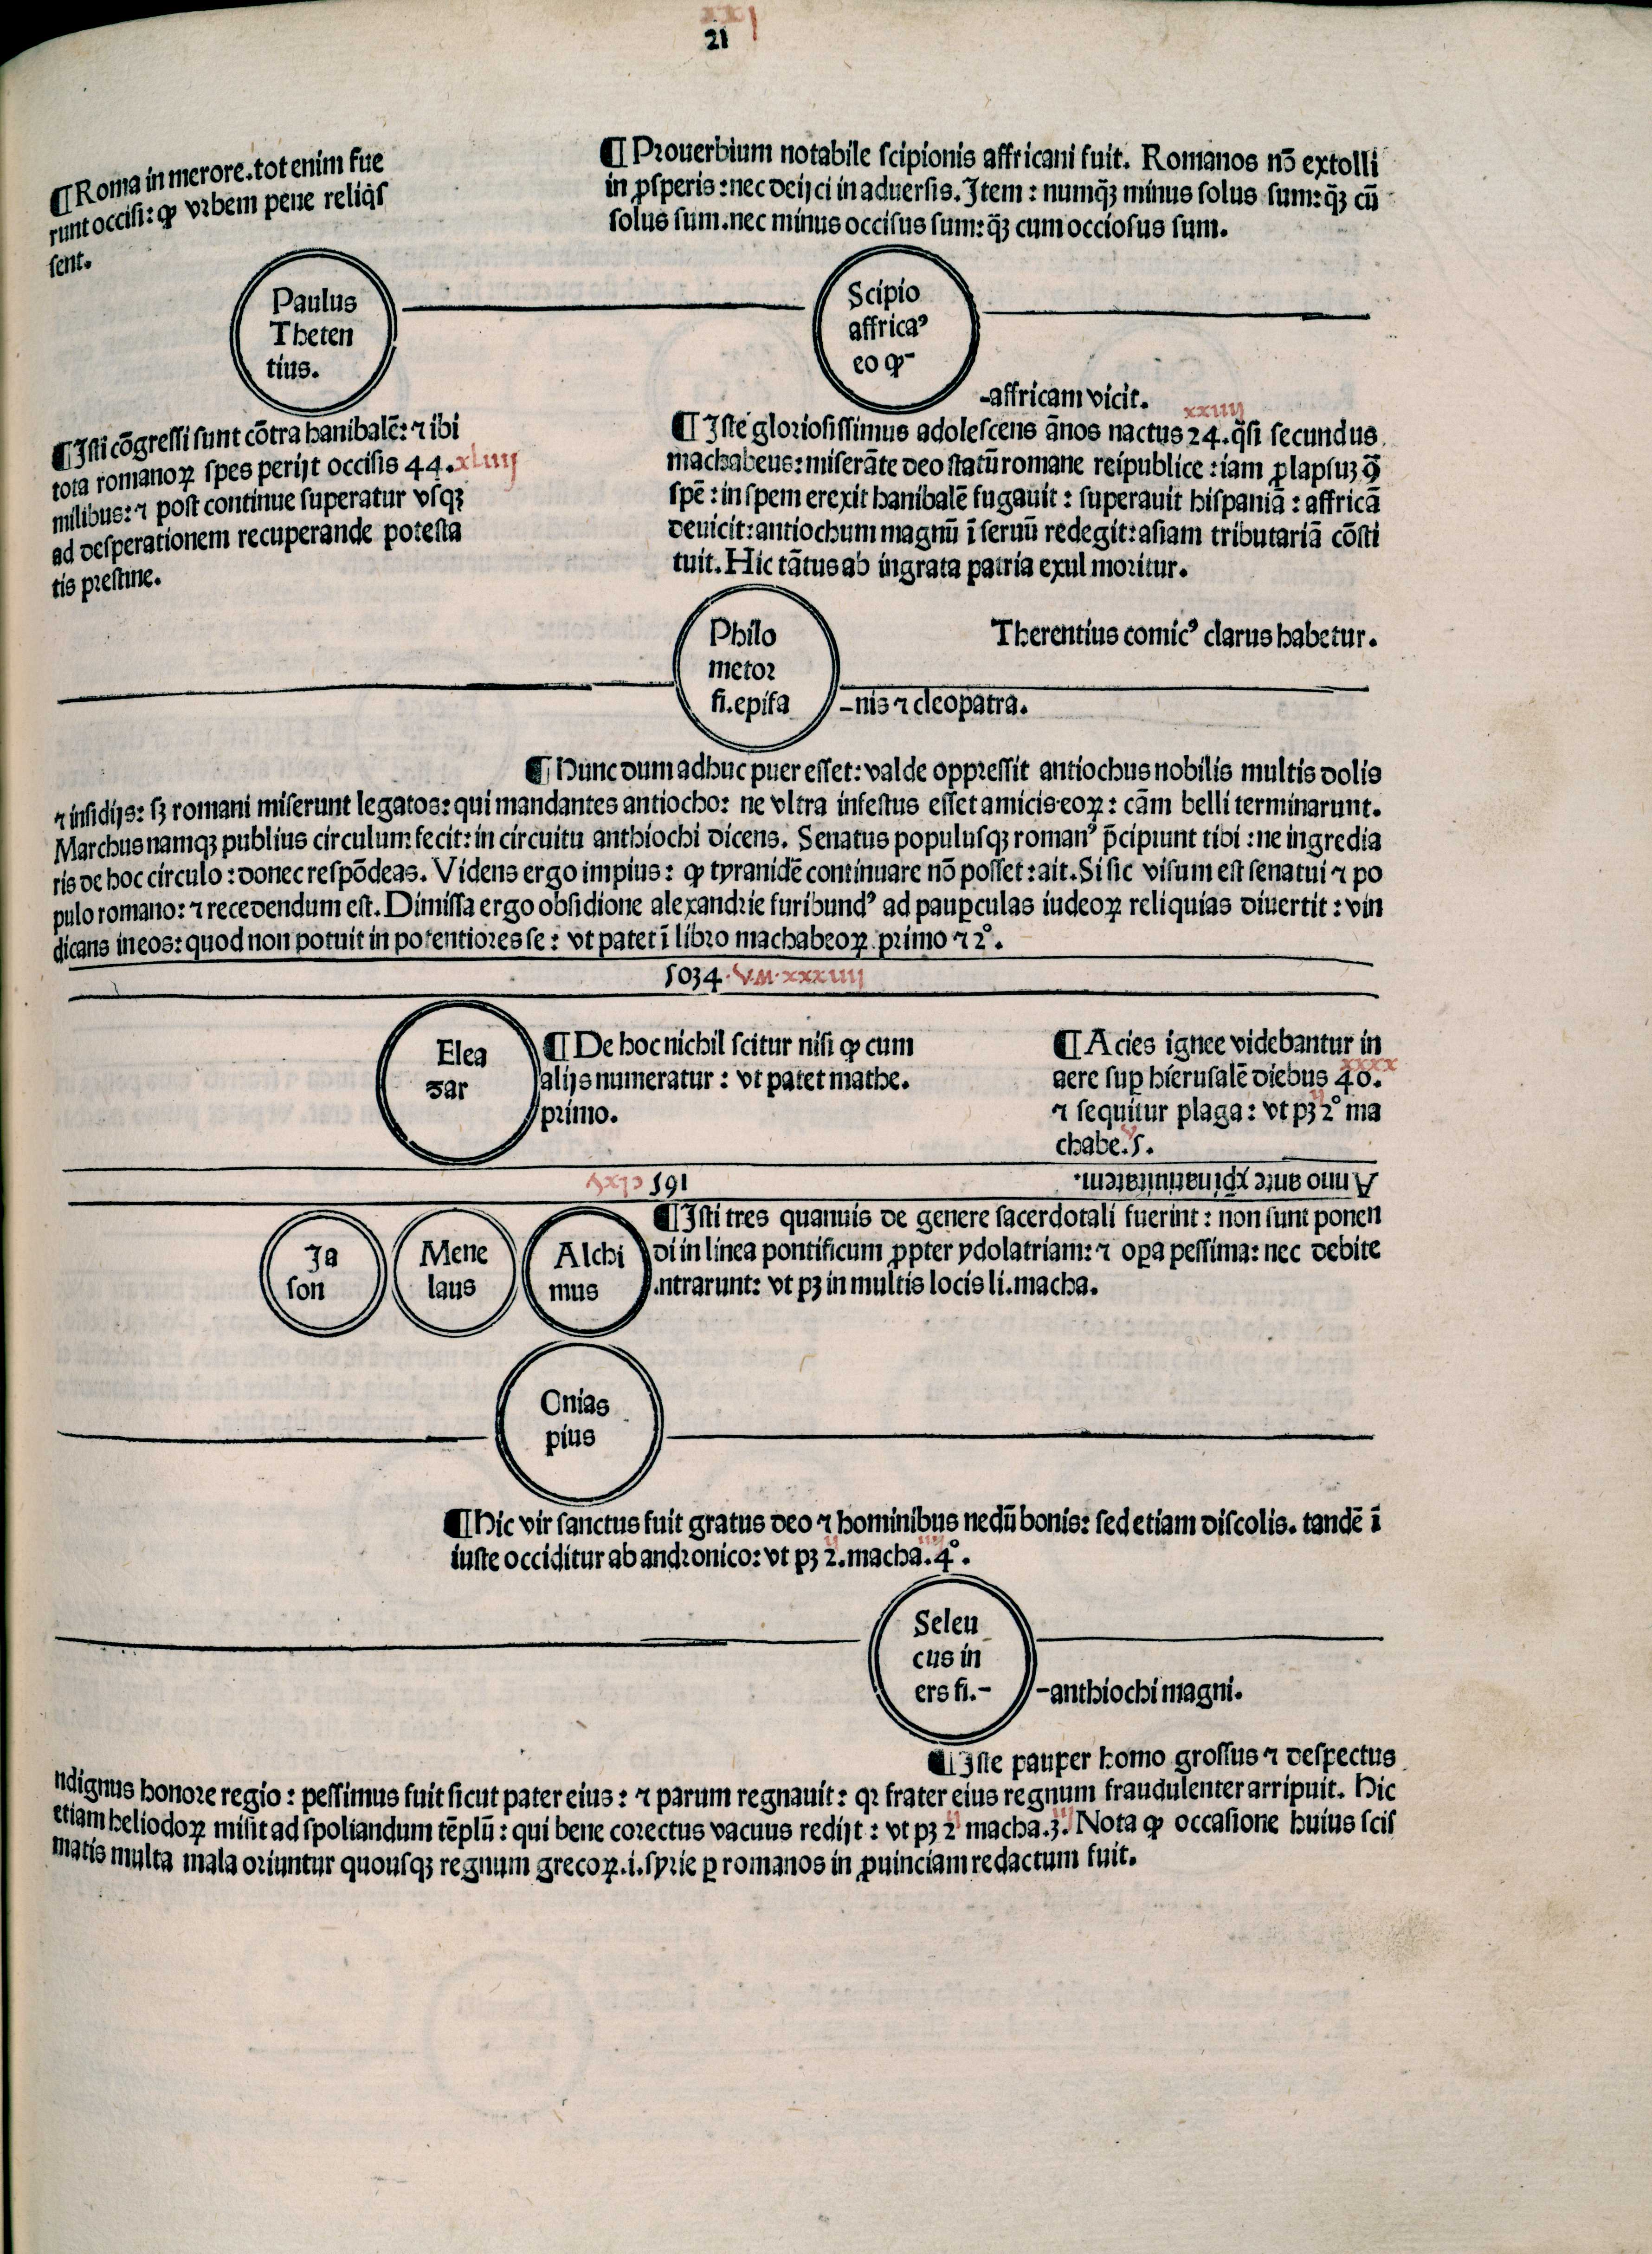 xxj
21
¶ Roma in merore. tot enim fue
runt occisi: ꝙ vrbem pene reliq̃s
sent.
¶ Prouerbium notabile scipionis affricani fuit. Romanos nõ extolli
in ꝓsperis: nec deijci in aduersis. Item: numq̃ʒ minus solus sum: q̃ʒ cũ
solus sum. nec minus occisus sum: q̃ʒ cum occiosus sum.
Paulus
Theten
tius.
Scipio
affricaꝰ
eo ꝙ-
-affricam vicit.
¶ Isti cõgressi sunt cõtra hanibalẽ: ⁊ ibi
tota romanoꝝ spes perijt occisis 44. xliiij
milibus: ⁊ post continue superatur vsqʒ
ad desperationem recuperande potesta
tis prestine.
xxiiij
¶ Iste gloriosissimus adolescens ãnos nactus 24. q̃si secundus
machabeus: miserãte deo statũ romane reipublice: iam ꝓlapsuʒ q̃
spẽ: in spem erexit hanibalẽ fugauit: superauit hispaniã: affricã
deuicit: antiochum magnũ ĩ seruũ redegit: asiam tributariã cõsti
tuit. Hic tãtus ab ingrata patria exul moritur.
Philo
metor
fi. epifa
-nis ⁊ cleopatra.
Therentius comicꝰ clarus habetur.
¶ Hunc dum adhuc puer esset: valde oppressit antiochus nobilis multis dolis
⁊ insidijs: sʒ romani miserunt legatos: qui mandantes antiocho: ne vltra infestus esset amicis eoꝝ: cãm belli terminarunt.
Marchus namqʒ publius circulum fecit: in circuitu anthiochi dicens. Senatus populusqʒ romanꝰ p̃cipiunt tibi: ne ingredia
ris de hoc circulo: donec respõdeas. Videns ergo impius: ꝙ tyranidẽ continuare nõ posset: ait. Si sic visum est senatui ⁊ po
pulo romano: ⁊ recedendum est. Dimissa ergo obsidione alexandrie furibundꝰ ad pauꝑculas iudeoꝝ reliquias diuertit: vin
dicans in eos: quod non potuit in potentiores se: vt patet ĩ libro machabeoꝝ primo ⁊ 2°.
5034. V.M. xxxiiij
Elea
zar
¶ De hoc nichil scitur nisi ꝙ cum
alijs numeratur: vt patet mathe.
primo.
¶ Acies ignee videbantur in
xxxx
aere suꝑ hierusalẽ diebus 40.
⁊ sequitur plaga: vt pʒ 2° ma
chabe. 5.
Anno ante xp̃i natiuitatem.
165 clxv
Ja
son
Mene
laus
Alchi
mus
¶ Isti tres quanuis de genere sacerdotali fuerint: non sunt ponen
di in linea pontificum ꝓpter ydolatriam: ⁊ oꝑa pessima: nec debite
.ntrarunt: vt pʒ in multis locis li. macha.
Onias
pius
¶ Hic vir sanctus fuit gratus deo ⁊ hominibus nedũ bonis: sed etiam discolis. tandẽ ĩ
iuste occiditur ab andronico: vt pʒ 2. macha. 4°.
Seleu
cus in
ers fi.-
-anthiochi magni.
¶ Iste pauper homo grossus ⁊ despectus
ndignus honore regio: pessimus fuit sicut pater eius: ⁊ parum regnauit: qꝛ frater eius regnum fraudulenter arripuit. Hic
etiam heliodoꝝ misit ad spoliandum tẽplũ: qui bene corectus vacuus redijt: vt pʒ 2 macha. 3. Nota ꝙ occasione huius scis
matis multa mala oriuntur quousqʒ regnum grecoꝝ .i. syrie ꝑ romanos in ꝓuinciam redactum fuit.